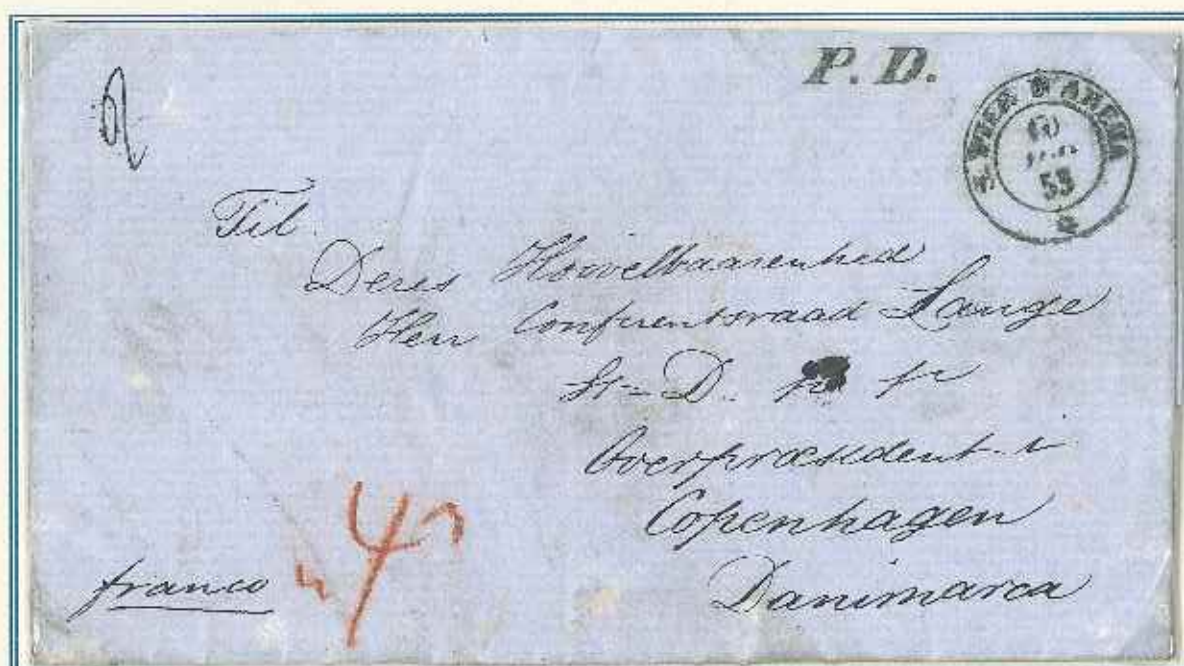 P. D.
S. PIER D'ARENA
10
53
Til
Deres Høivelbaarenhed
Herr Conferentsraad Lange
St = D.
Overpræsident i
Copenhagen
Danimarca
franco